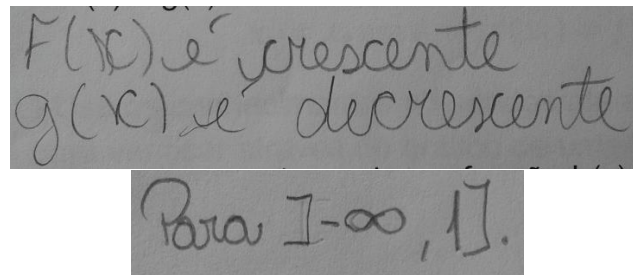 F(x) é crescente
g(x) é decrescente
Para ]-∞, 1].